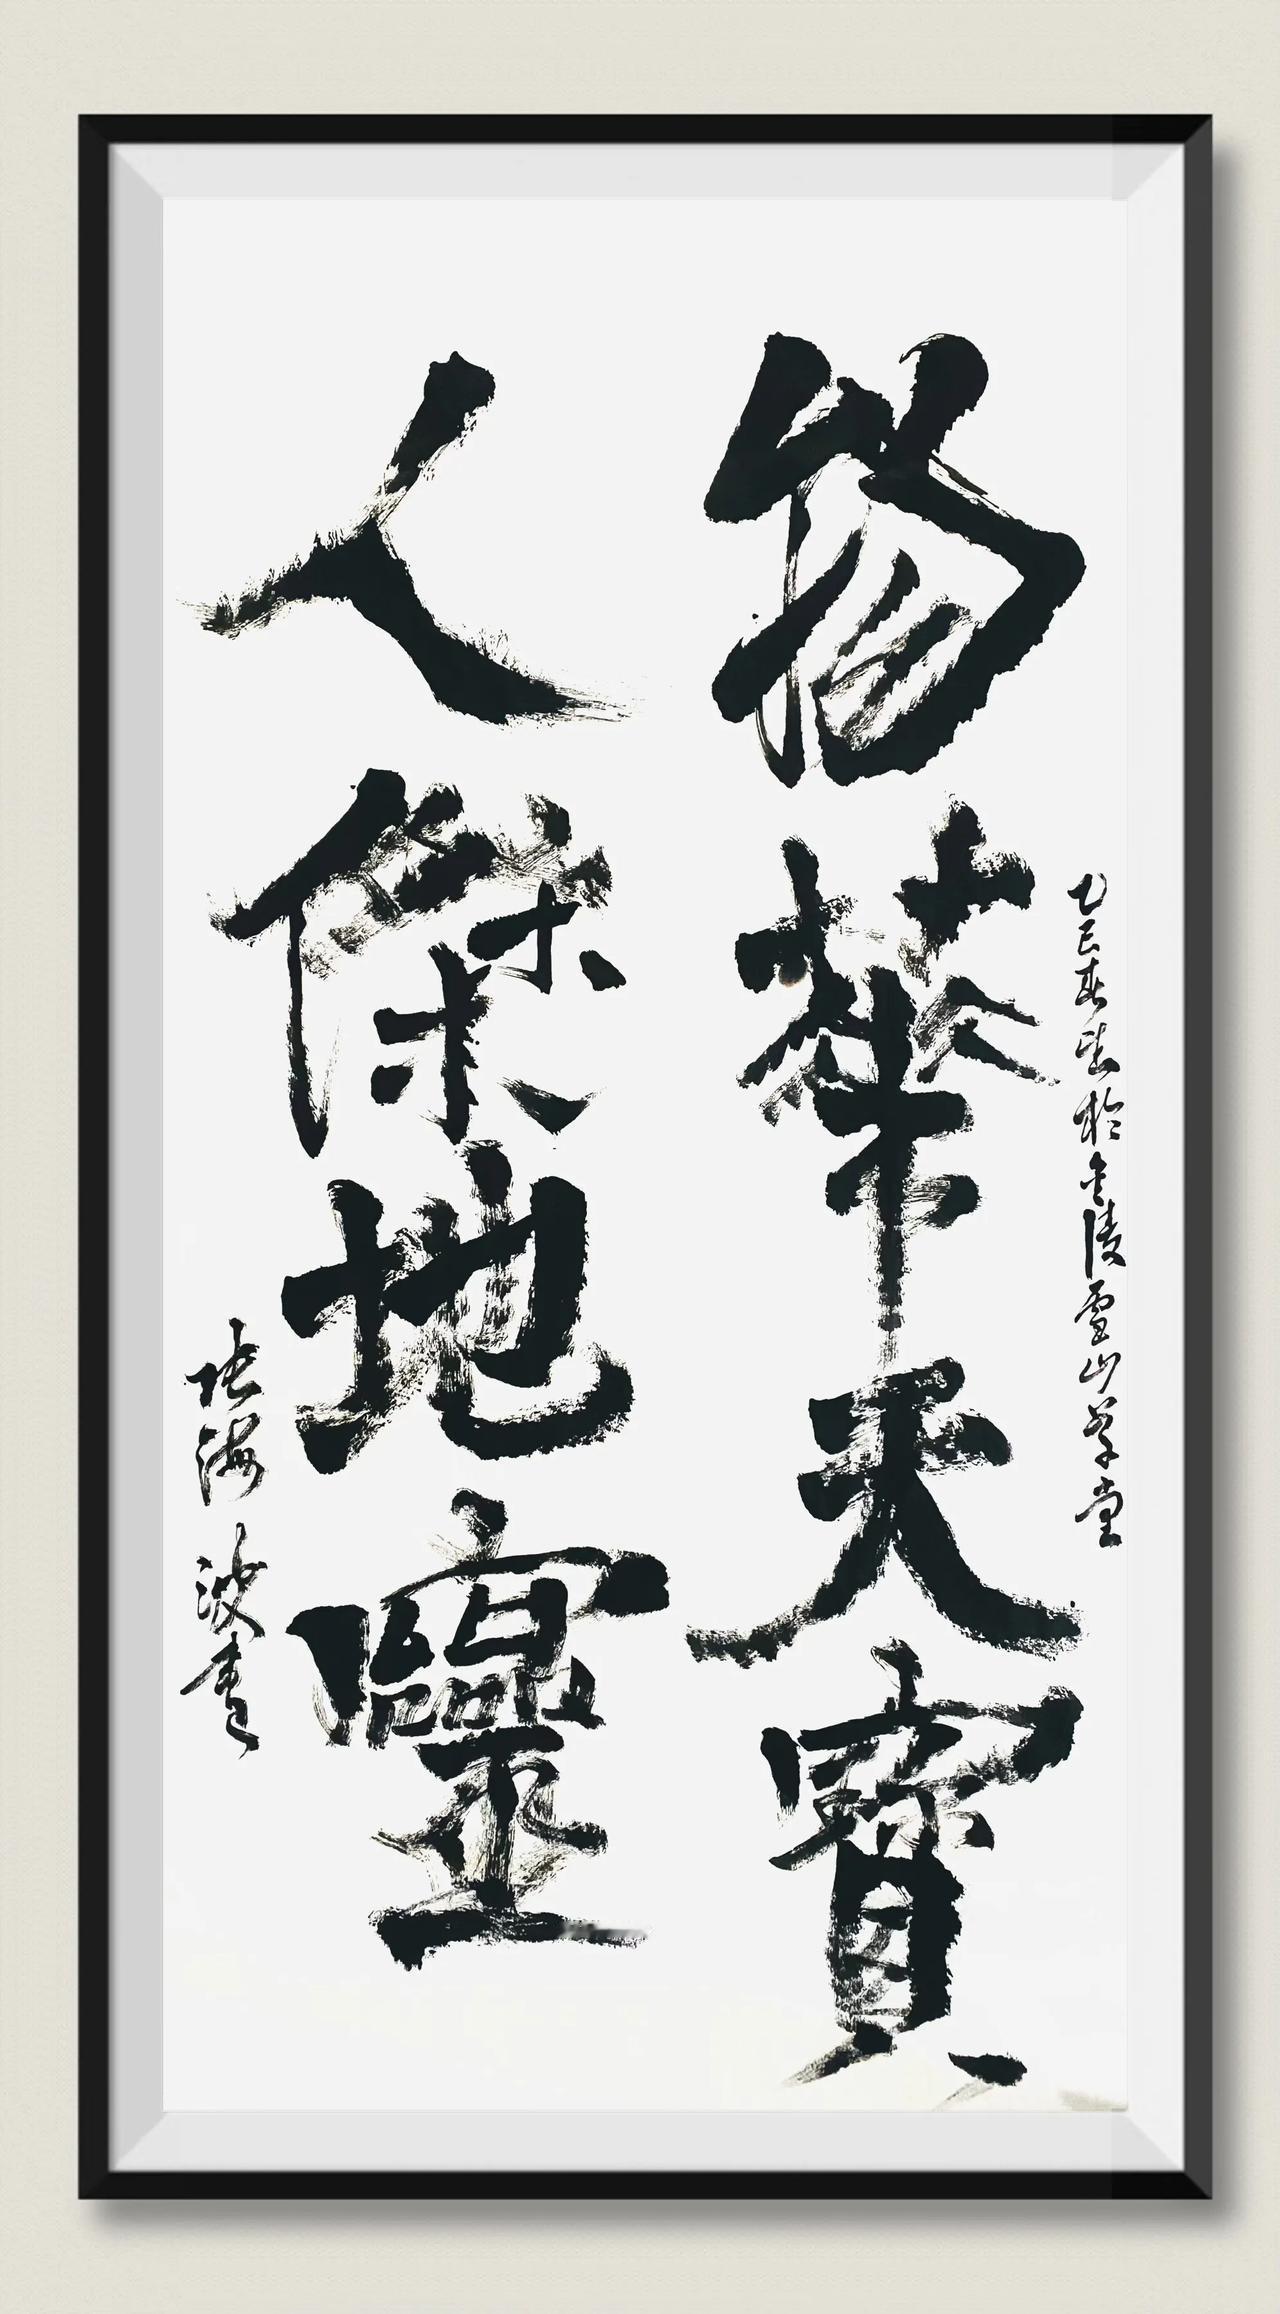 物華天寶
人傑地靈
乙巳春月於金陵雪山草堂
張海波書